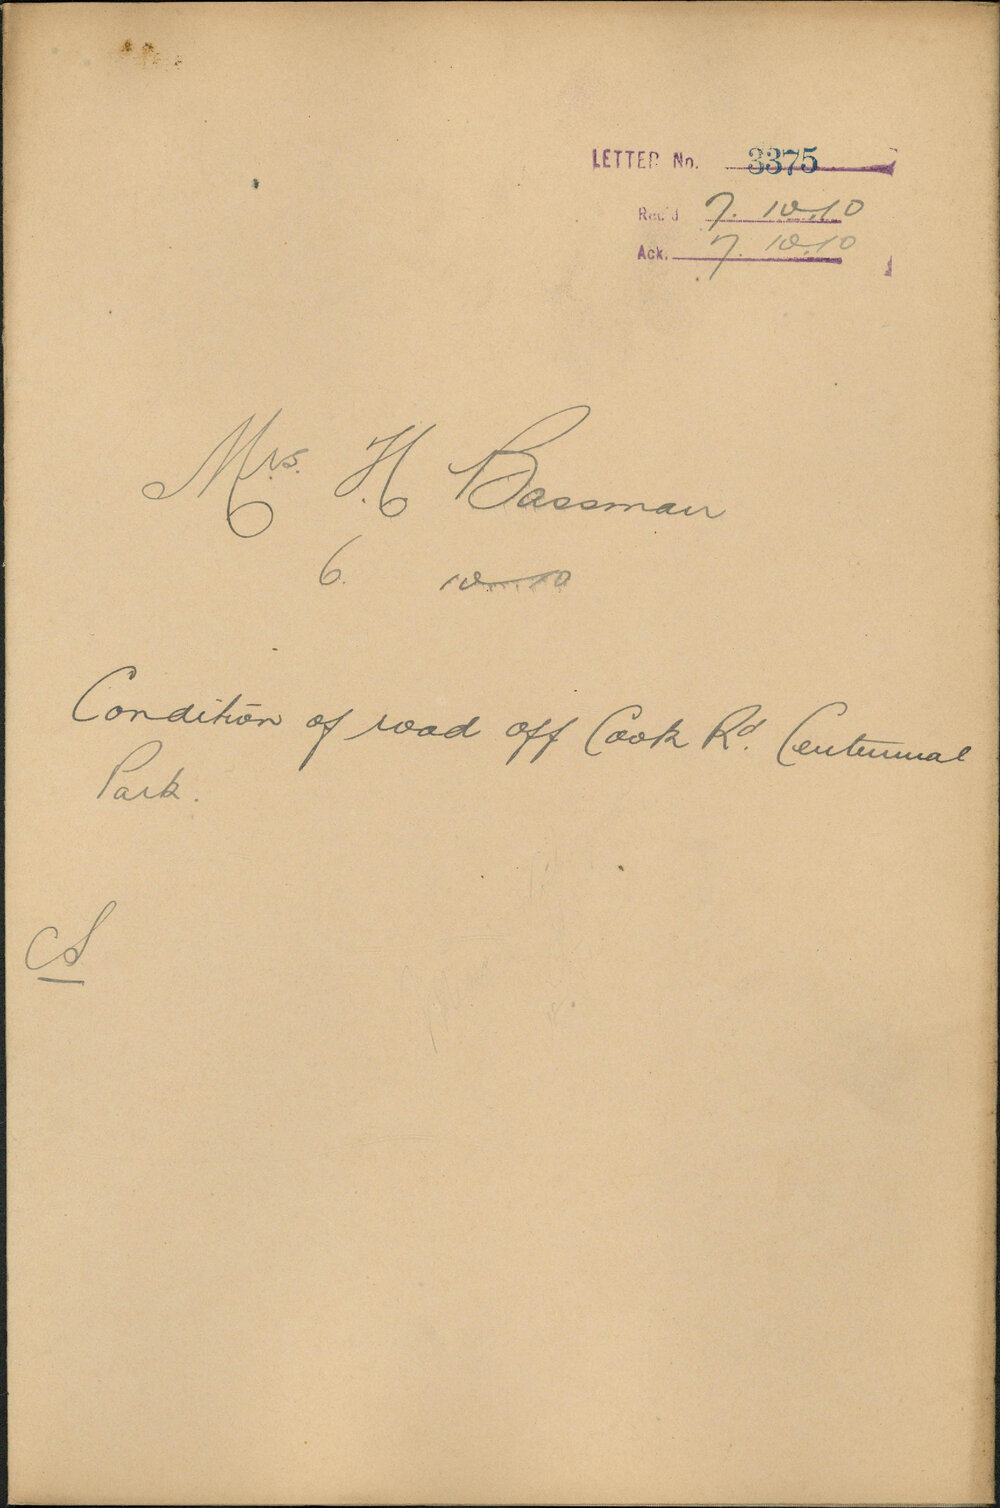 LETTER No. 3375
Rec'd 7. 10.10
Ack. 7. 10.10
Mrs. H Bassman
6. 10.10
Condition of road off Cook Rd. Centennial
Park.
CS